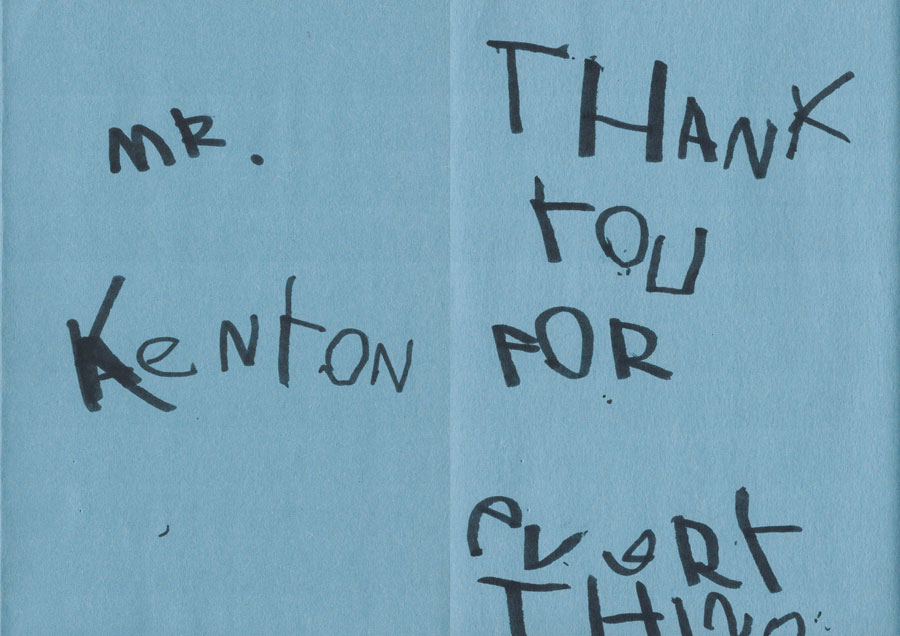 MR.
Kenton
THANK
YOU
FOR
eveRY
THING